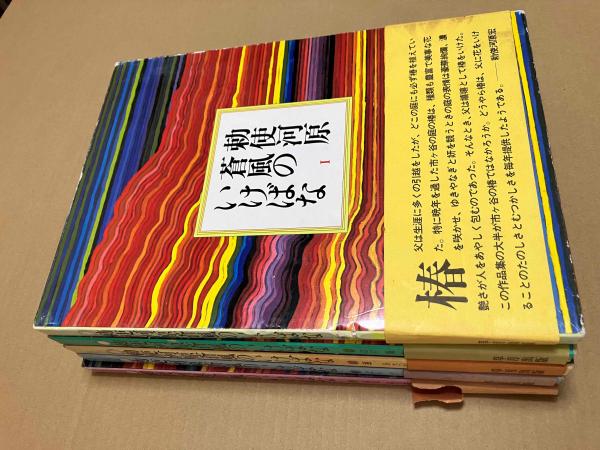 勅使河原
蒼風の
いけばな
I
椿
父は生涯に多くの引越をしたが、どこの庭にも必ず椿を植えてい
た。特に晩年を過した市ヶ谷の庭の椿は、種類も豊富で美事な花
を咲かせ、ゆきやなぎと妍を競うときの庭の表情は豪華絢爛、濃
艶さが人をあやしく包むのであった。そんなとき、父は猶猶として椿をいけた。
この作品集の大半が市ヶ谷の椿ではなかろうか。どうやら椿は、父に花をいけ
ることのたのしさとむつかしさを毎年提供したようである。
勅使河原宏